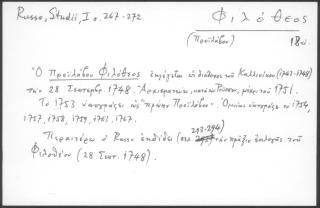 Russo, Studii, I σ. 267-272
Φιλόθεος
(Προϊλάβου) 18 αἰ.
Ὁ Προϊλάβου Φιλόθεος ἐκλέγεται ὡς διάδοχος τοῦ Καλλινίκου (1743-1748)
τὴν 28 Σεπτεμβρ. 1748. Ἀρχιερατεύει, κατὰ τὸν Ροῦσσον, μέχρι τοῦ 1751.
Τὸ 1753 ὑπογράφει ὡς "πρώην Προϊλάβου". Ὁμοίως ὑπογράφει τὸ 1754,
1757, 1758, 1759, 1763, 1767.
293-294)
Περαιτέρω ὁ Russo ἐκδίδει (σελ. τὴν πρᾶξιν ἐκλογῆς τοῦ
Φιλοθέου (28 Σεπτ. 1748).